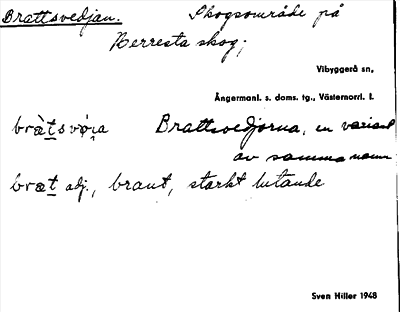 Brattsvedjan. Skogsområde på
Herresta skog;
Vibyggerå sn,
Ångermanl. s. doms. tg., Västernorrl. l.
Brattsvedjorna, en variant
av samma namn
bræt adj., brant, starkt lutande
Sven Hiller 1948